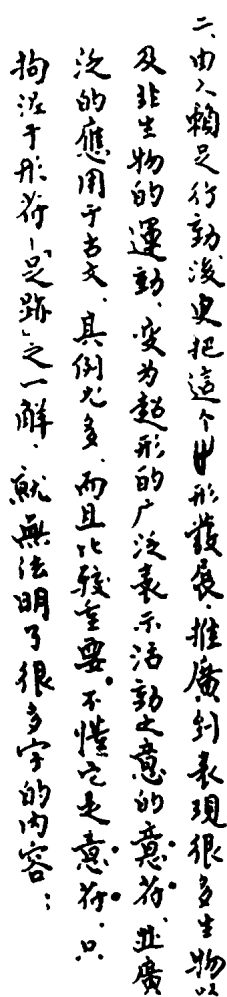 二、由人賴足行動，後更把這个屮形發展，推廣到表現很多生物以
及非生物的運動，变为超形的广泛表示活動之意的意符，並廣
泛的應用于古文，其例尤多，而且比較重要。不懂它是意符，只
拘泥于形符—「足跡」之一解，就無法明了很多字的内容：